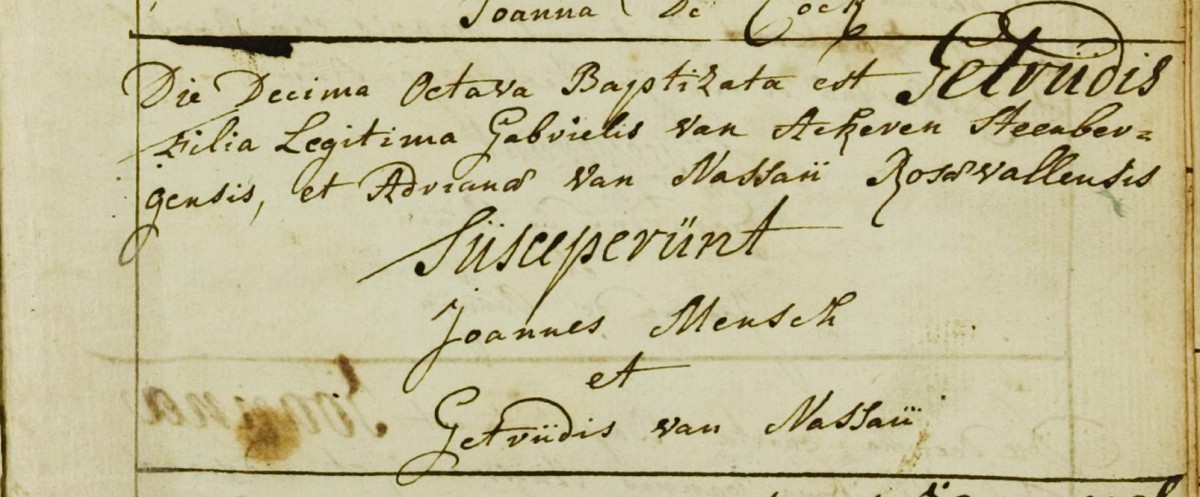 Joanna De Cock
Die Decima Octava Baptizata est Getrüdis
Filia Legitima Gabrielis van Ackeren Steenber=
gensis, et Adrianæ van Nassaü Rosævallensis
Süsceperünt
Joannes Mensch
et
Getrüdis van Nassaü